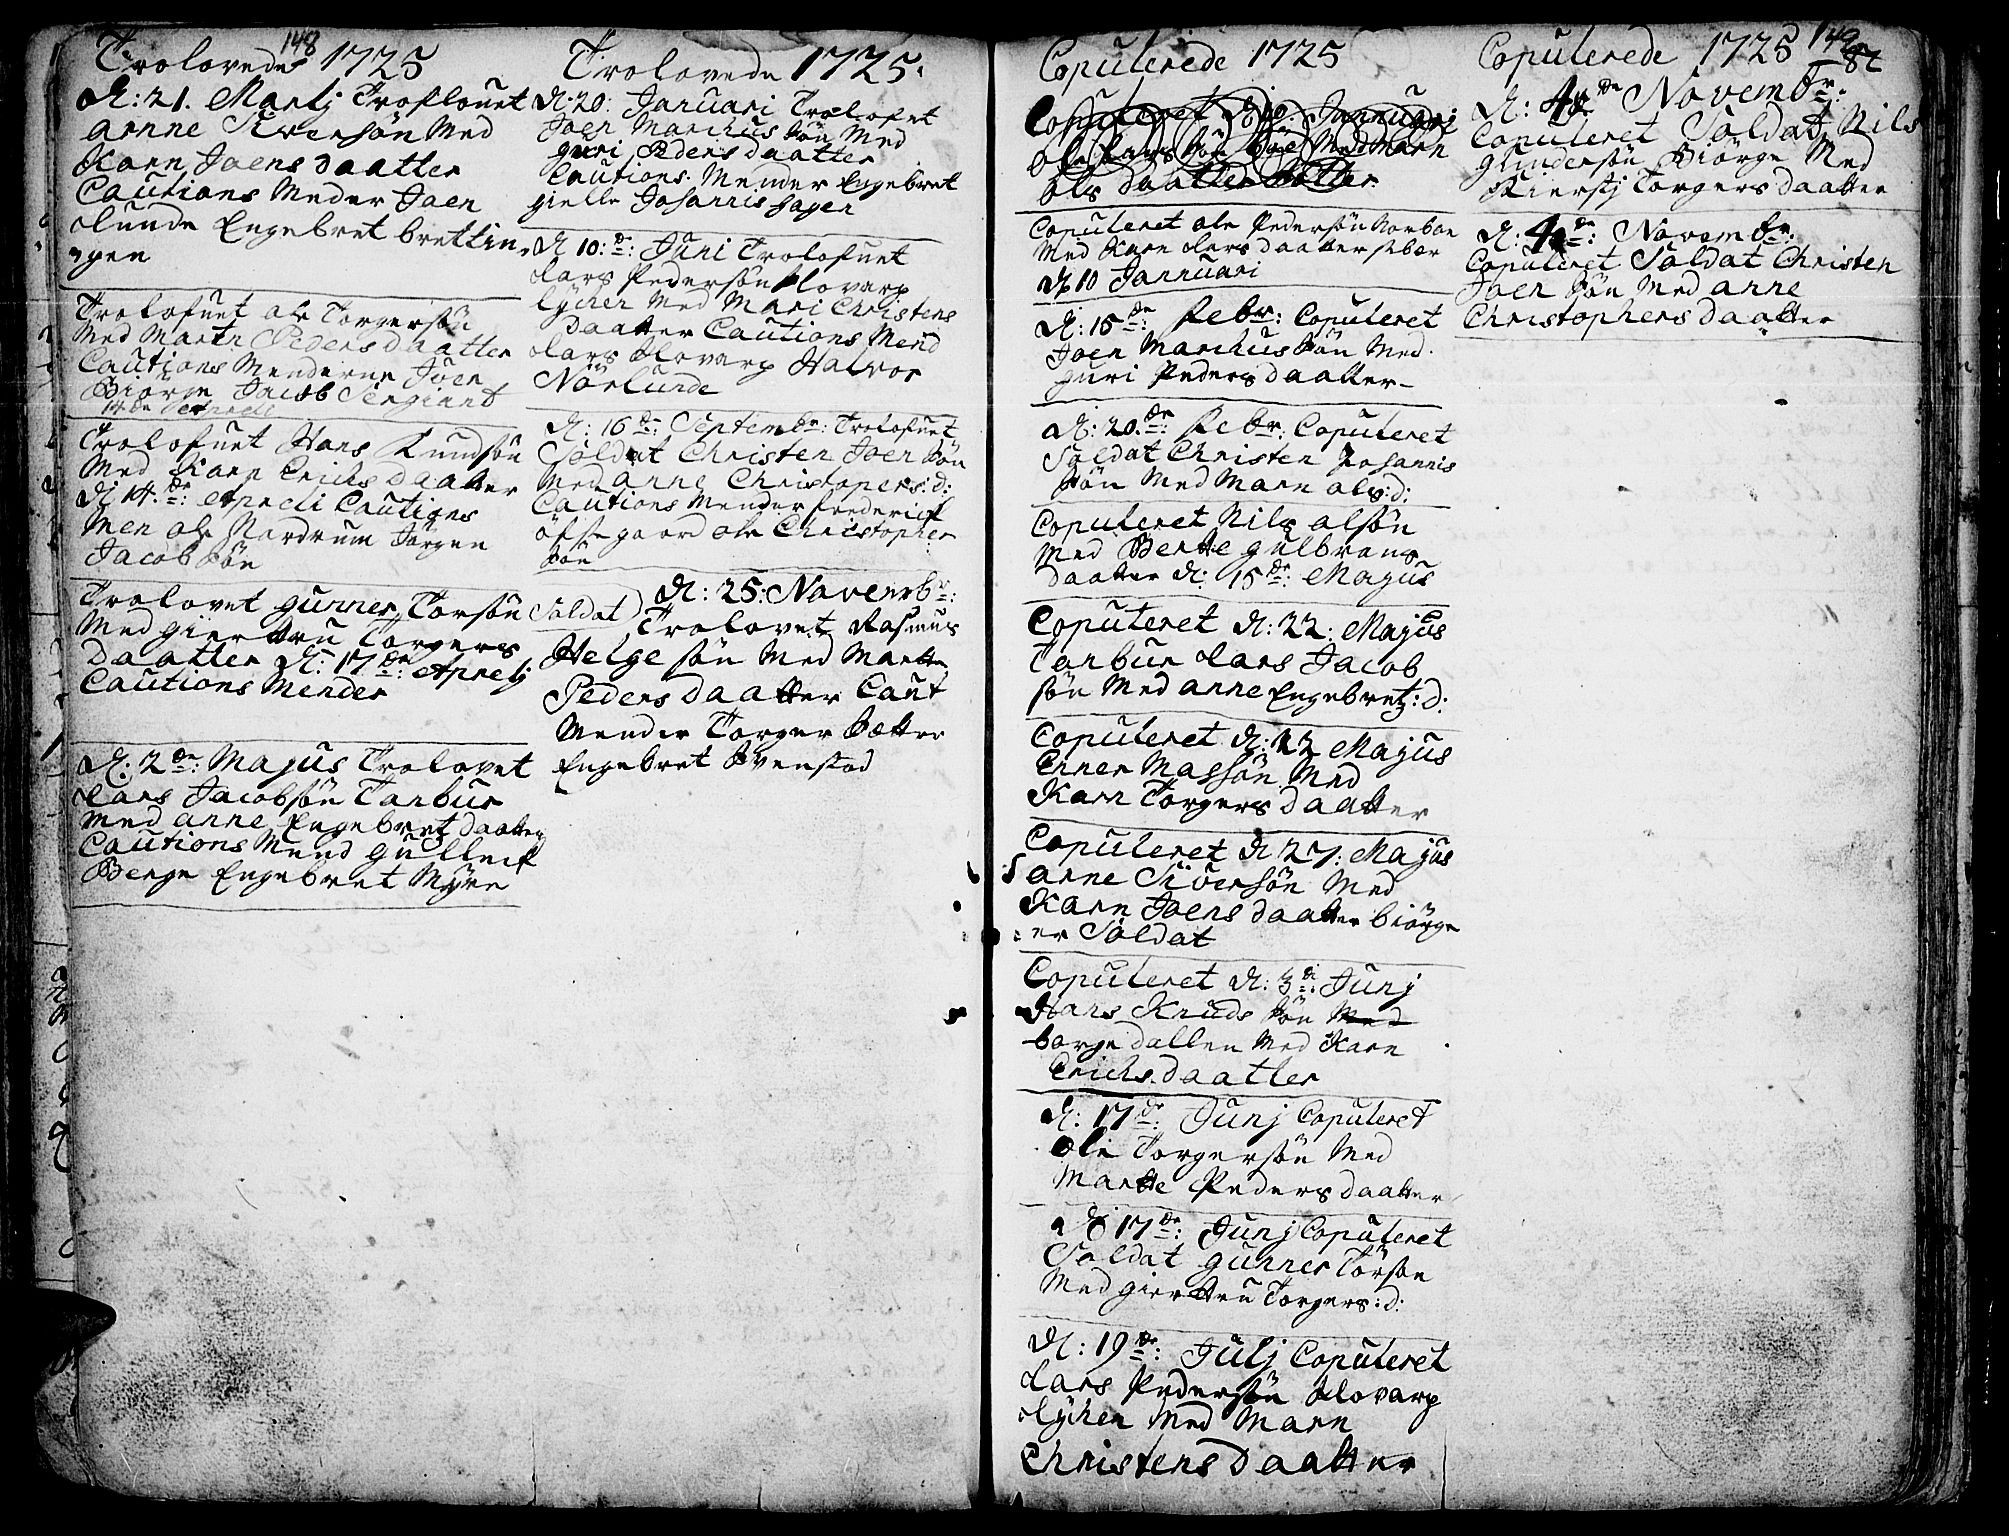 148
Trolovede 1725
d: 21. Martj Troflouet
arnne Siversøn Med
Karn Joens Daatter
Cautions Meder Joen
Lunde Engebret brettin„
„gen
Trolofuet ole Torgersøn
Med Marte Peders daatter
Cautions Menderne Joen
Biørge Jacob Sergiant
14 de Aprili
Trolofuet Hans Knudsøn
Med Karn Erichs Daatter
d: 14. de: Apreli Cautions
Men ole Nordrum Jørgen
Jacobsøn
Trolovet gunner Torsøn
Med gierttru Torgers
Daatter d: 17 de: Aprelj
Cautions Mender
d: 2 de: Majus Trolovet
Lars Jacobsøn Tarbur
Med anne Engebretz daatter
Cautions Mend gulleick
Berge Engebret Myre
Trolovede 1725.
d: 20: Januari Trolofuet
Joen Marchussøn Med
guri Peders daatter
Cautions. Mender Engebret
gielle Johannis hagen
d 10: de: Juni Trolofuet
Lars Pedersøn Hovarp
lychen Med Mari Christens
Daatter Cautions Mend
Lars Hovarp Halvor
Norlunde
d: 16 de: Septembr: Trolofuet
Soldat Christen Joensøn
Med anne Christopers: d:
Cautions Mender frederick
ofsegaord ole Christopher
søn
d: 25: Novembr:
Soldat) Trolovet Rasmus
Helgesøn Med Marte
Peders Daatter Caut
Mender Torger Sætter
Engebret Svenstad
Copulerede 1725
Copuleret d: 10: Januarj
ole Lars søn boe Med Marn
ols daatter
Copuleret ole Pedersøn Norboe
Med Karn Lars daatter
d 10 Jannuari
d: 15 de: Febr: Copuleret
Joen Marchussøn Med
guri Peders daatter
d: 20. de: Febr: Copuleret
Soldat Christen Johannis
søn Med Marn ols: d:
Copuleret Nils olsøn
Med Berte gulbrans
daatter d: 15 de: Majus
Coputeret d: 22: Majus
Tarbur Lars Jacob
søn Med anne Engebretz: d:
Copuleret d: 22 Majus
Ener Massøn Med
Karn Torgers Daatter
Copuleret d 27: Majus
arne Siversøn Med
Karn Joens daatter biørge
er Soldat
Copuleret d: 3 de: Junj
Hans Knudssøn Med
borge dallen Med Karn
Erichs. Daatter
d: 17 de: Junj Copuleret
Ole Torgersøn Med
Marte Peders daatter
d 17 de: Junj Copuleret
Soldat gunner Torsøn
Med gierttru Torgers: d:
d: 19 de: Julj Copuleret
Lars Pedersøn Hovarp
lychen Med Marn
Christens Daatter
149
82
Copulerede 1725
d: 4 de Novembr:
Copuleret Soldat Nils
gundersøn Biørge Med
Kierstj Torgers daatter
d: 4 de: Novembr:
Copuleret Soldat Christen
Joensøn Med anne
Christophers daatter